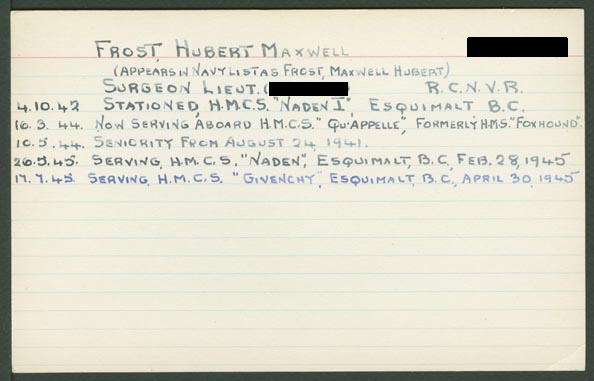 FROST, HUBERT MAXWELL
(APPEARS IN NAVY LIST AS FROST, MAXWELL HUBERT)
SURGEON LIEUT. ( R.C.N.V.R.
4.10.42 STATIONED, H.M.C.S. "NADEN I", ESQUIMALT B.C.
16.3.44. NOW SERVING ABOARD H.M.C.S. "QU'APPELLE", FORMERLY H.M.S. "FOXHOUND".
10.5.44. SENIORITY FROM AUGUST 24, 1941.
20.3.45. SERVING, H.M.C.S. "NADEN", ESQUIMALT, B.C., FEB. 28, 1945
17.7.45. SERVING, H.M.C.S. "GIVENCHY", ESQUIMALT, B.C., APRIL 30, 1945